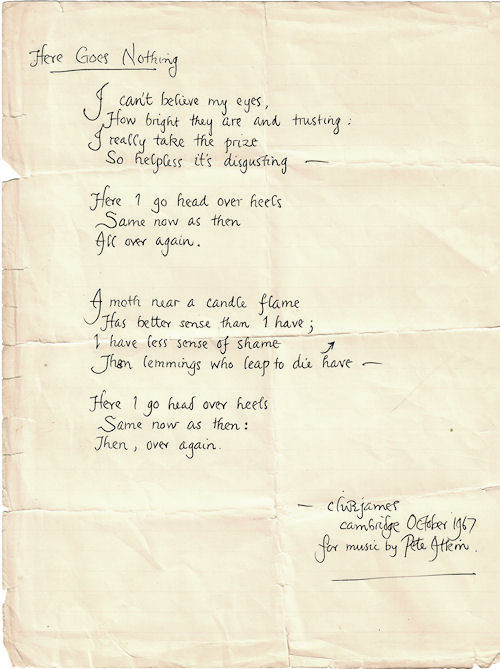 Here Goes Nothing
I can't believe my eyes,
How bright they are and trusting:
I really take the prize
So helpless it's disgusting —
Here I go head over heels
Same now as then
All over again.
A moth near a candle flame
Has better sense than I have;
I have less sense of shame
Than lemmings who leap to die have —
Here I go head over heels
Same now as then:
Then, over again.
— clivejames
cambridge October 1967
for music by Pete Atkin.